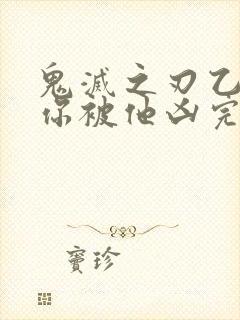 鬼滅之刃乙
你被他凶完
寶珍